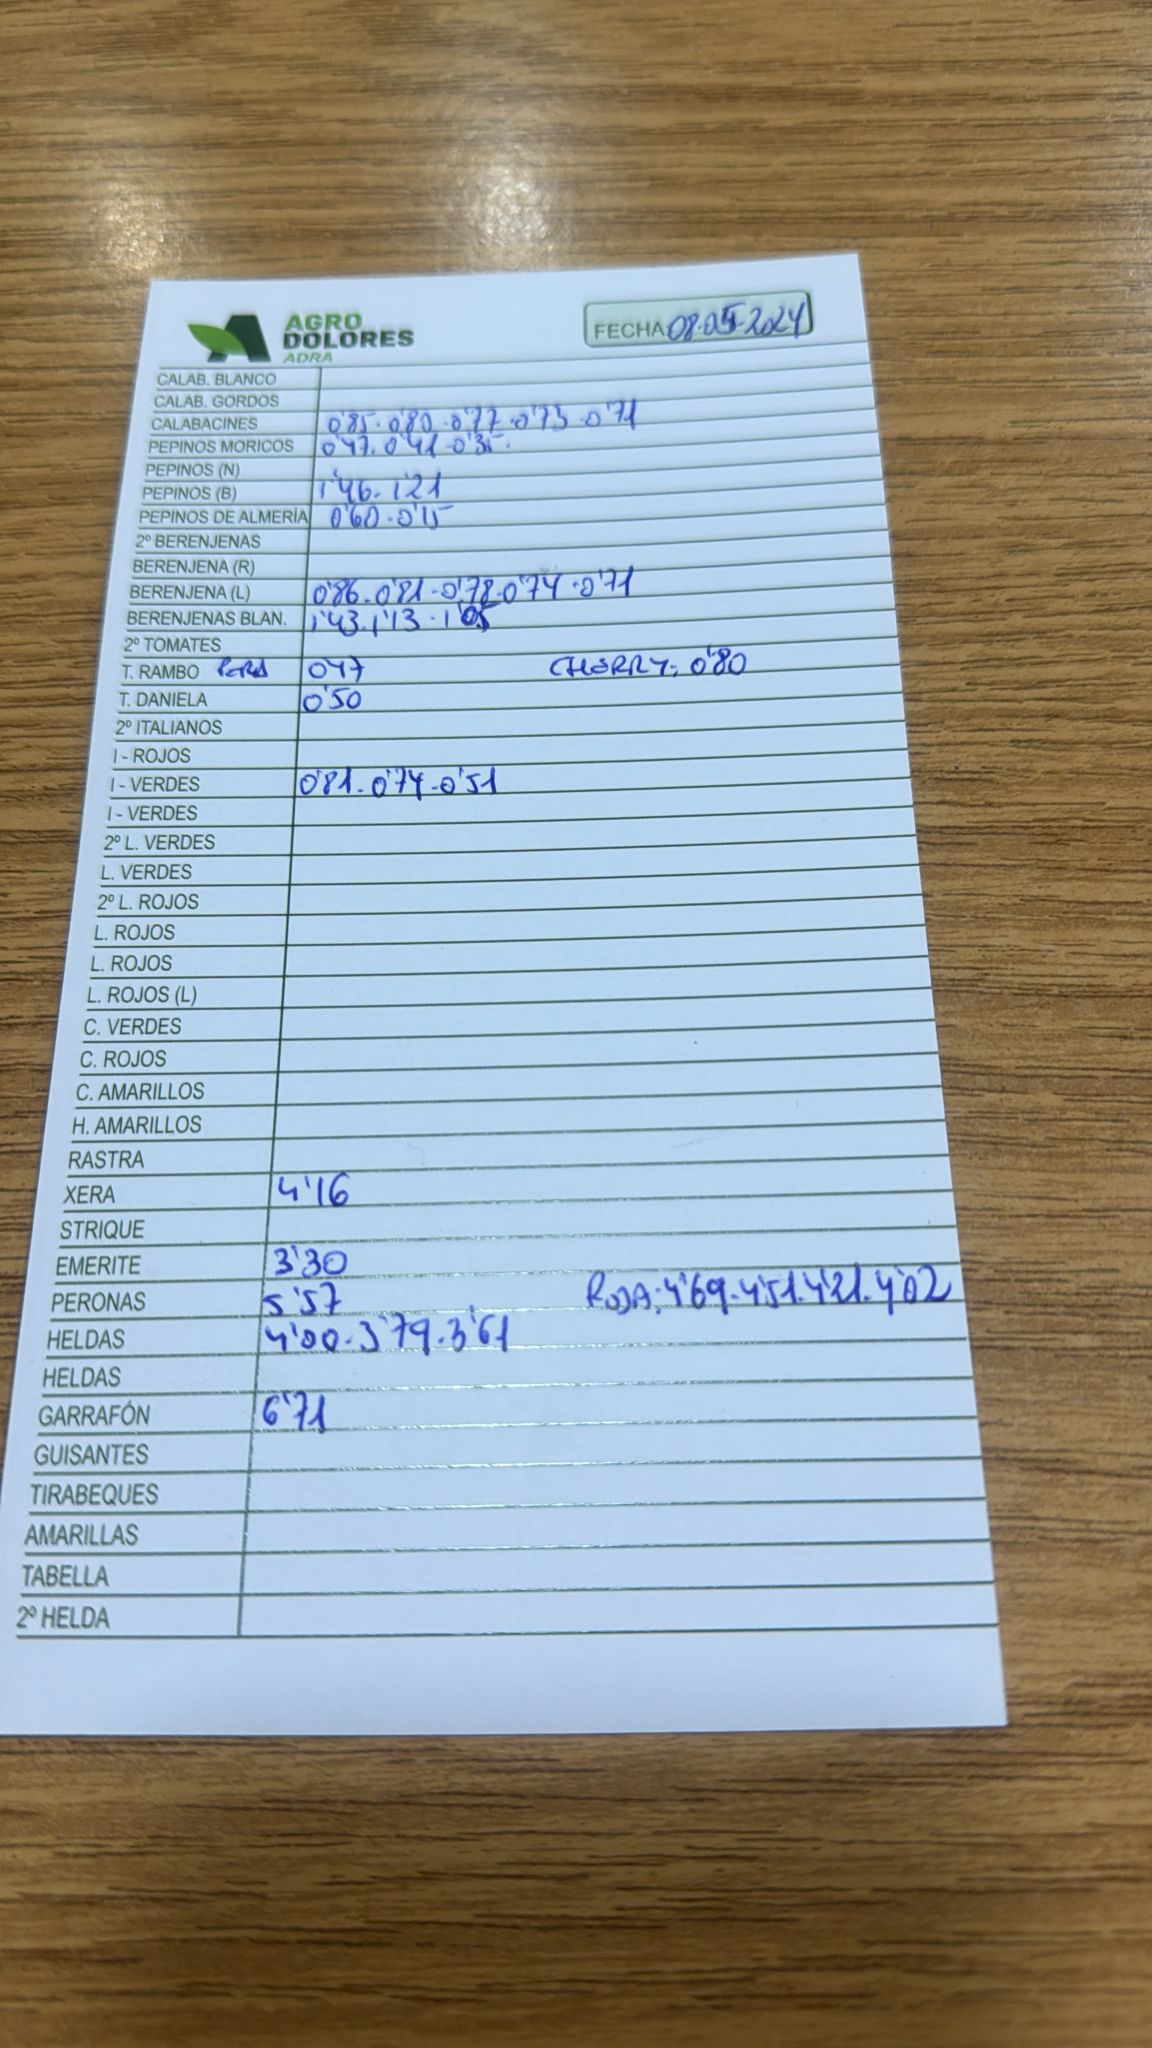 AGRO
DOLORES
ADRA
FECHA 08-05-2024
CALAB. BLANCO
CALAB. GORDOS
CALABACINES 0'85-0'80-0'77-0'73-0'71
PEPINOS MORICOS 0'47-0'41-0'35-
PEPINOS (N)
PEPINOS (B) 1'46-1'21
PEPINOS DE ALMERÍA 0'60-0'15
2º BERENJENAS
BERENJENA (R)
BERENJENA (L) 0'86-0'81-0'78-0'74-0'71
BERENJENAS BLAN. 1'43-1'13-1'05
2º TOMATES
T. RAMBO PERA 0'47 CHERRY: 0'80
T. DANIELA 0'50
2º ITALIANOS
I - ROJOS
I - VERDES 0'81-0'74-0'51
I - VERDES
2º L. VERDES
L. VERDES
2º L. ROJOS
L. ROJOS
L. ROJOS
L. ROJOS (L)
C. VERDES
C. ROJOS
C. AMARILLOS
H. AMARILLOS
RASTRA
XERA 4'16
STRIQUE
EMERITE 3'30
PERONAS 5'57 ROJA: 4'69-4'51-4'21-4'02
HELDAS 4'00-3'79-3'61
HELDAS
GARRAFÓN 6'71
GUISANTES
TIRABEQUES
AMARILLAS
TABELLA
2º HELDA